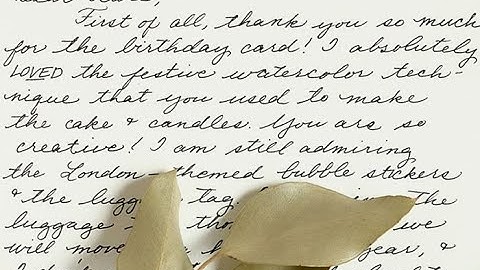 First of all, thank you so much
for the birthday card! I absolutely
LOVED the festive watercolor tech-
nique that you used to make
the cake & candles. You are so
creative! I am still admiring
the London-themed bubble stickers
& the luggage tag. The
luggage we
will move year, &